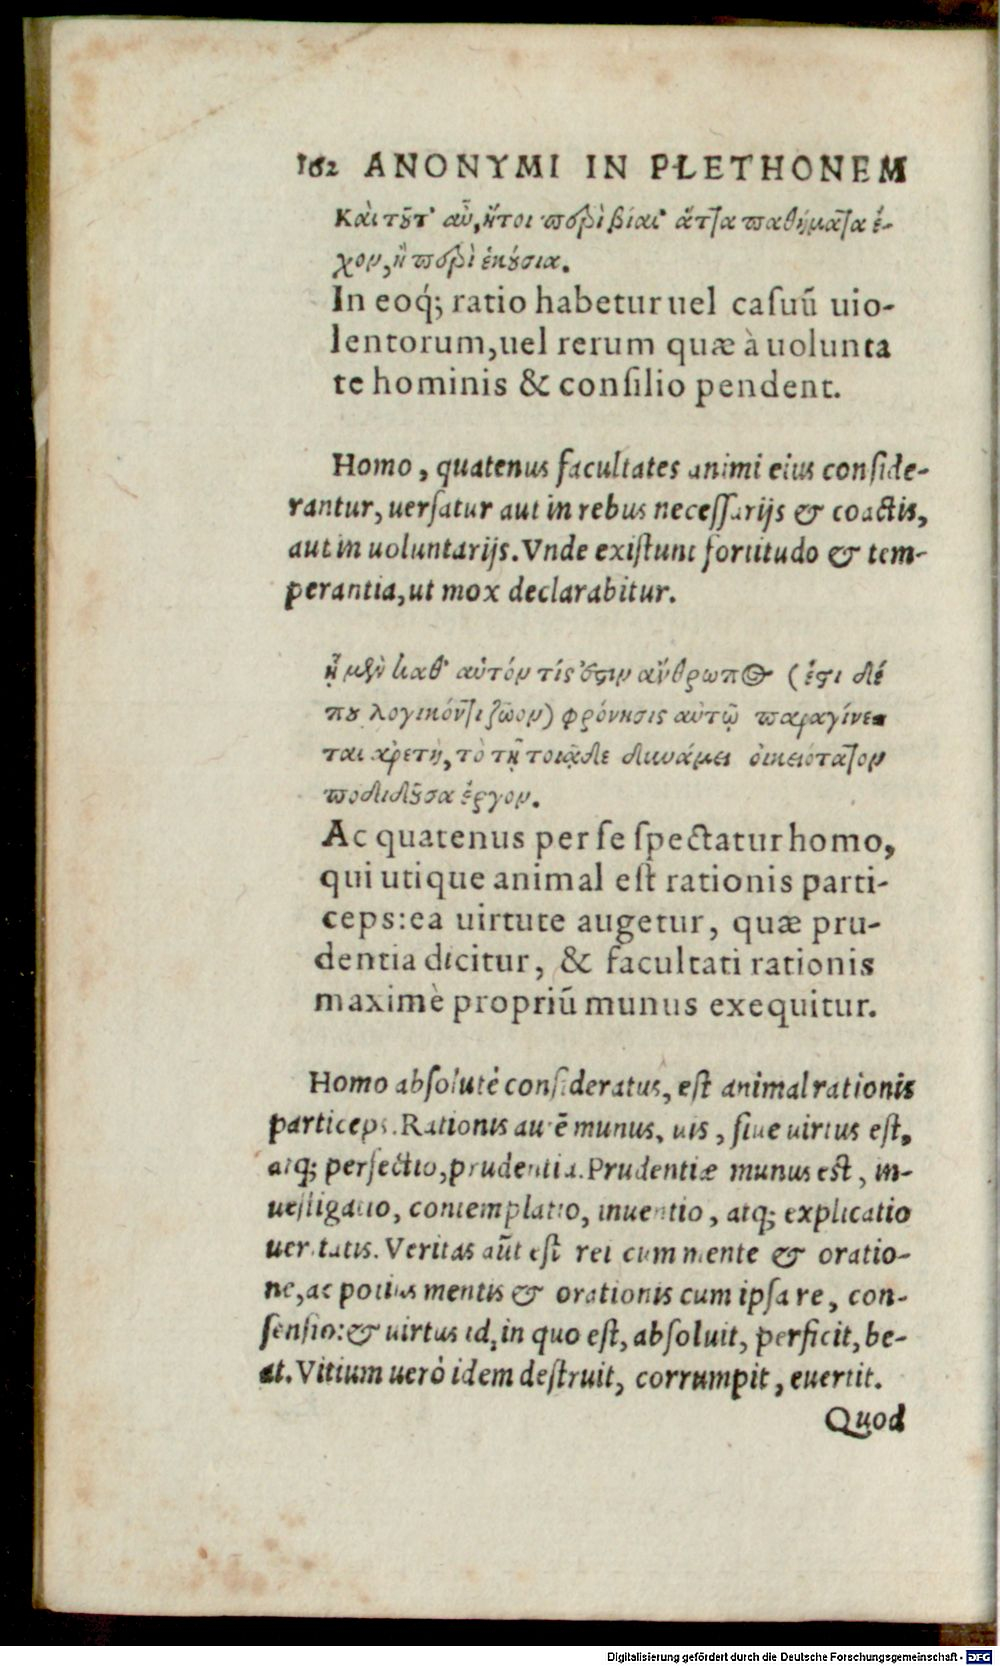 162 ANONYMI IN PLETHONEM
Καὶ τοῦτ' αὖ, ἤτοι περὶ βίαι' ἄττα παθήματα ἔ-
χον, ἢ περὶ ἑκούσια.
In eoq́; ratio habetur uel caſuũ uio-
lentorum, uel rerum quæ à uolunta
te hominis & conſilio pendent.
Homo, quatenus facultates animi eius conſide-
rantur, uerſatur aut in rebus neceſſarijs & coactis,
aut in uoluntarijs. Vnde exiſtunt fortitudo & tem-
perantia, ut mox declarabitur.
ᾗ μὲν καθ' αὑτόν τίς ὅστιν ἄνθρωπος (ἔστι δέ
που λογικόν τι ζῶον) φρόνησις αὐτῷ παραγίνε-
ται ἀρετὴ, τὸ τῇ τοιᾷδε δυνάμει οἰκειότατον
ποδιδοῦσα ἔργον.
Ac quatenus per ſe ſpectatur homo,
qui utique animal eſt rationis parti-
ceps: ea uirtute augetur, quæ pru-
dentia dicitur, & facultati rationis
maximè propriũ munus exequitur.
Homo abſolutè conſideratus, eſt animal rationis
particeps. Rationis autẽ munus, uis, ſiue uirtus eſt,
atq; perfectio, prudentia. Prudentiæ munus eſt, in-
ueſtigatio, contemplatio, inuentio, atq; explicatio
ueritatis. Veritas aũt eſt rei cum mente & oratio-
ne, ac potius mentis & orationis cum ipſa re, con-
ſenſio: & uirtus id, in quo eſt, abſoluit, perficit, be-
at. Vitium uerò idem deſtruit, corrumpit, euertit.
Quod
Digitalisierung gefördert durch die Deutsche Forschungsgemeinschaft - DFG